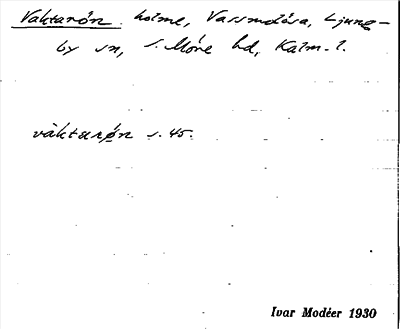 Vaktarön. holme, Vassmolösa, Ljung-
by sn, S. Möre hd, Kalm. l.
vàktarǿn s. 45.
Ivar Modéer 1930